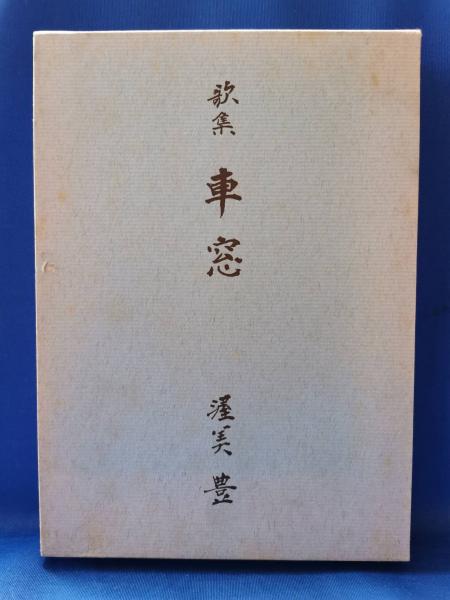 歌集 車窓
渥美 豊